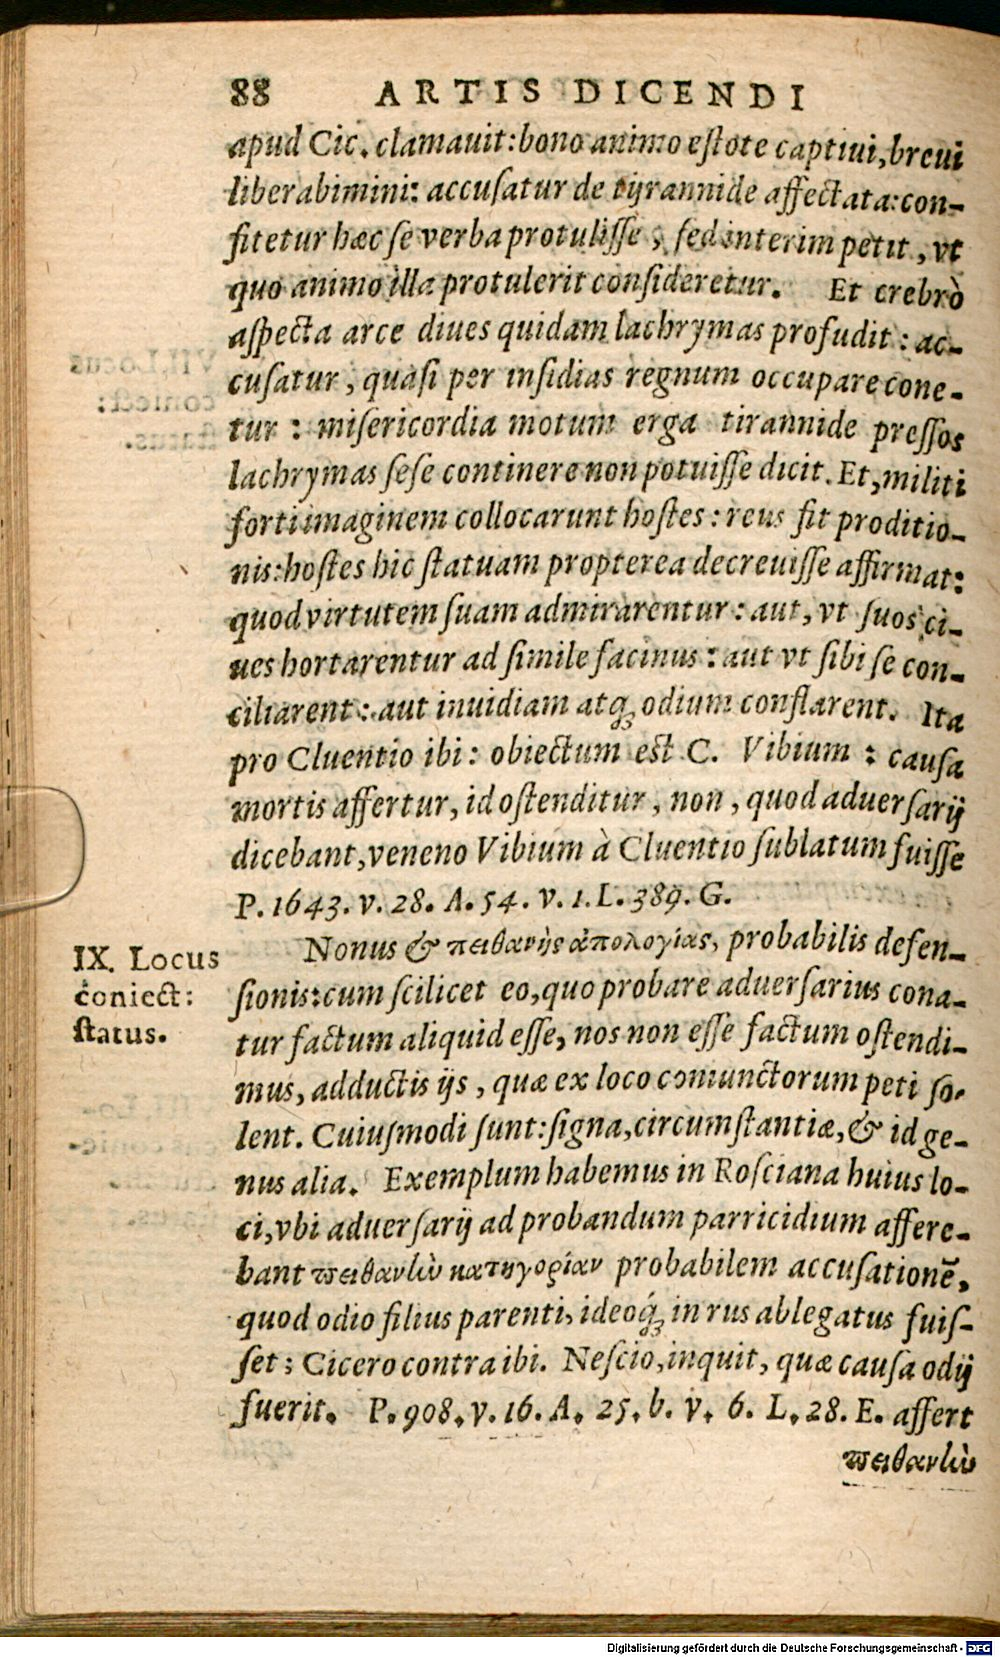 88 ARTIS DICENDI
apud Cic. clamauit: bono animo eſtote captiui, breui
liberabimini: accuſatur de tyrannide affectata: con-
fitetur hæc ſe verba protuliſſe, ſed interim petit, vt
quo animo illa protulerit conſideretur. Et crebrò
aſpecta arce diues quidam lachrymas profudit: ac-
cuſatur, quaſi per inſidias regnum occupare cone-
tur: miſericordia motum erga tirannide preſſos
lachrymas ſeſe continere non potuiſſe dicit. Et, militi
forti imaginem collocarunt hoſtes: reus fit proditio-
nis: hoſtes hic ſtatuam propterea decreuiſſe affirmat:
quod virtutem ſuam admirarentur: aut, vt ſuos ci-
ues hortarentur ad ſimile facinus: aut vt ſibi ſe con-
ciliarent: aut inuidiam atq́ꝫ odium conflarent. Ita
pro Cluentio ibi: obiectum est C. Vibium: cauſa
mortis affertur, id oſtenditur, non, quod aduerſarij
dicebant, veneno Vibium à Cluentio ſublatum fuiſſe
P. 1643. v. 28. A. 54. v. 1. L. 389. G.
IX. Locus
coniect:
ſtatus.
Nonus & πειθανῆς ἀπολογίας, probabilis defen-
ſionis: cum ſcilicet eo, quo probare aduerſarius cona-
tur factum aliquid eſſe, nos non eſſe factum oſtendi-
mus, adductis ijs, quæ ex loco coniunctorum peti ſo-
lent. Cuiuſmodi ſunt: ſigna, circumſtantiæ, & id ge-
nus alia. Exemplum habemus in Roſciana huius lo-
ci, vbi aduerſarij ad probandum parricidium affere-
bant πειθανὴν κατηγορίαν probabilem accuſationē,
quod odio filius parenti, ideoq́ꝫ in rus ablegatus fuiſ-
ſet; Cicero contra ibi. Neſcio, inquit, quæ cauſa odij
fuerit. P. 908. v. 16. A. 25. b. v. 6. L. 28. E. affert
πειθανὴν
Digitalisierung gefördert durch die Deutsche Forschungsgemeinschaft - DFG